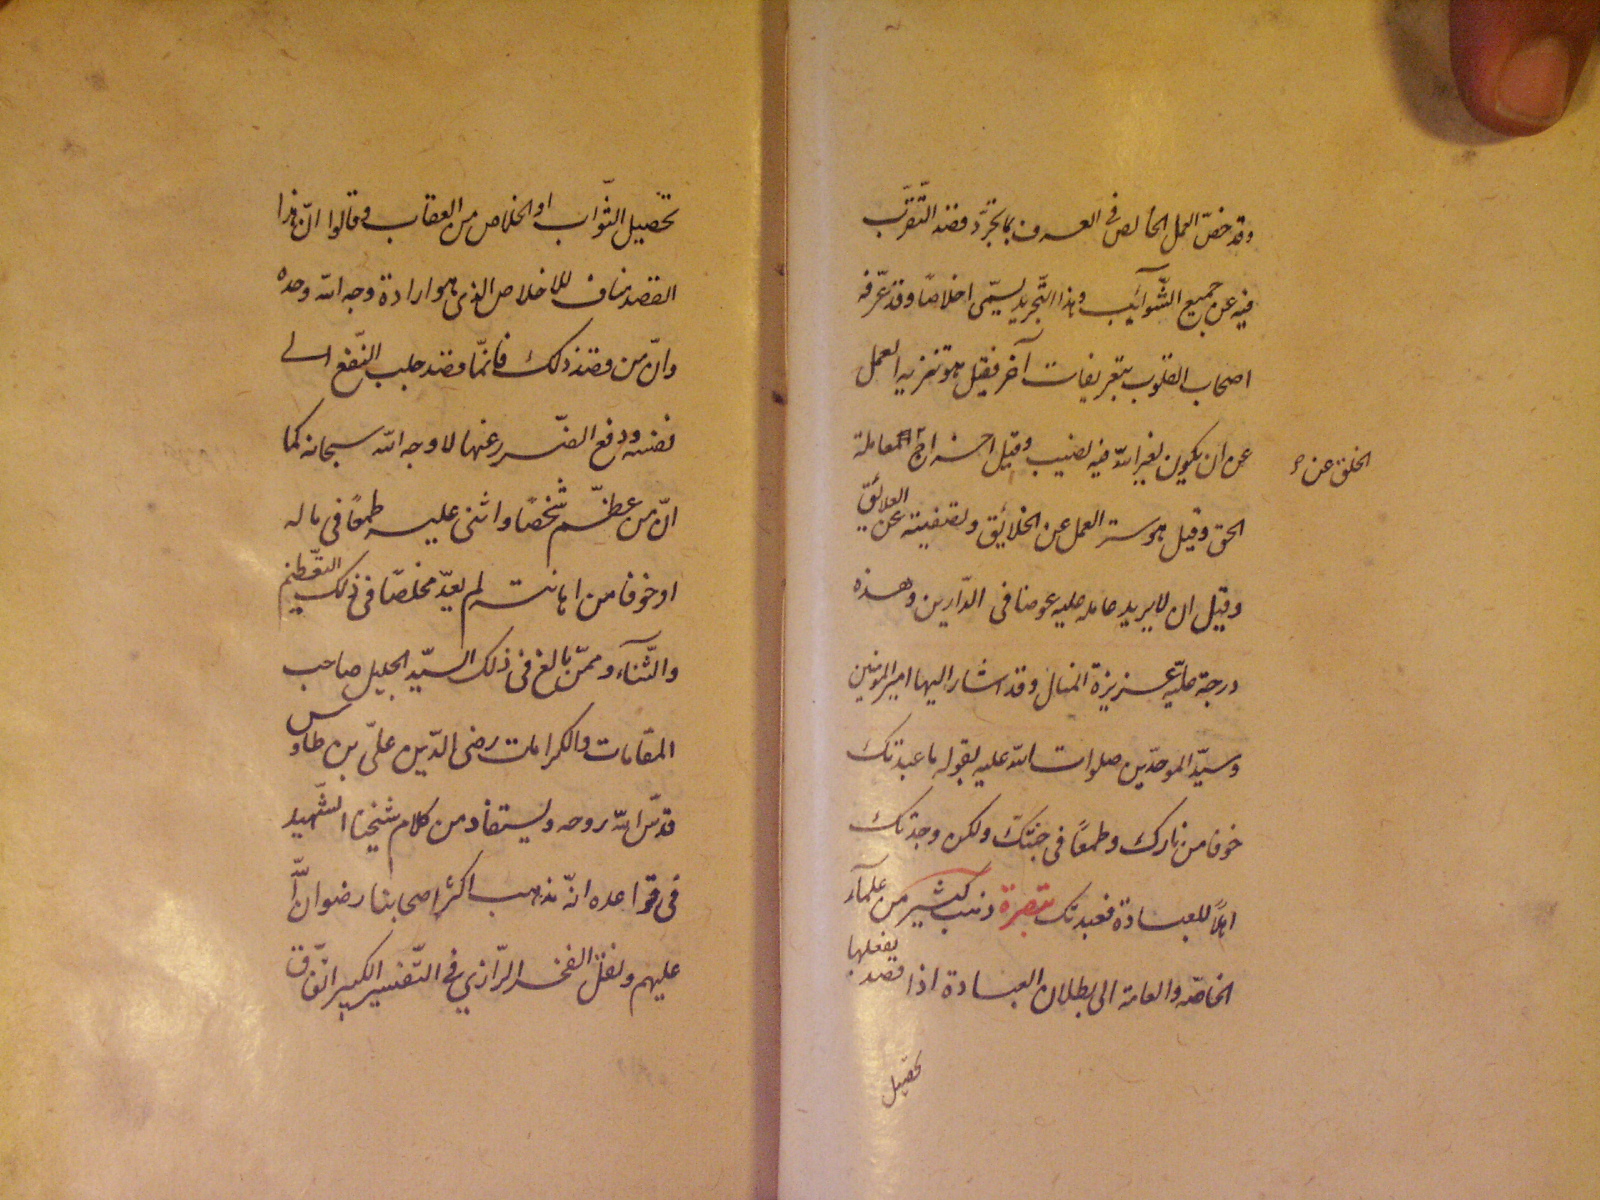 وقد خصّ العمل الخالص فى العرف بما تجرّد قصد التّقرّب
فيه عن جميع الشّوآئب وهذا التّجريد يسمّى اخلاصًا وقد عرّفه
اصحاب القلوب بتعريفات آخر فقيل هو تنزيه العمل
عن ان يكون لغير اللّه فيه نصيب وقيل اخراج المعاملة
الخلق عن
الحق وقيل هو ستر العمل عن الخلائق وتصفيته عن العلائق
وقيل ان لا يريد عامله عليه عوضا فى الدّارين وهذه
درجة عليّة عزيزة المنال وقد اشار اليها امير المؤمنين
وسيّد الموحّدين صلوات اللّه عليه بقوله ما عبدتك
خوفا من نارك وطمعًا فى جنّتك ولكن وجدتك
اهلاً للعبادة فعبدتك تبصرة ذهب كثير من علمآء
الخاصّه والعامة الى بطلان العبادة اذا قصد بفعلها
تحصيل
تحصيل الثّواب او الخلاص من العقاب وقالوا انّ هذا
القصد مناف للاخلاص الذى هو ارادة وجه اللّه وحده
وانّ من قصد ذلك فانّما قصد جلب النّفع الى
نفسه ودفع الضّرر عنها لا وجه اللّه سبحانه كما
انّ من عظّم شخصًا واثنى عليه طمعًا فى ماله
او خوفا من اهانته لم يعدّ مخلصًا فى ذلك التّعظيم
والثّنآء وممّن بالغ فى ذلك السيّد الجليل صاحب
المقامات والكرامات رضى الدّين علىّ بن طاوس
قدّس اللّه روحه ويستفاد من كلام شيخنا الشّهيد
فى قواعده انّه مذهب اكثر اصحابنا رضوان اللّه
عليهم ونقل الفخر الرّازي فى التّفسير الكبير اتّفاق